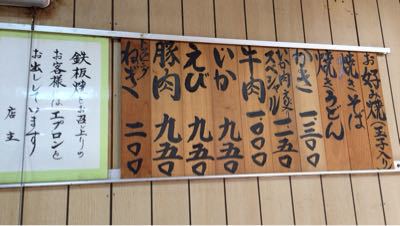 お好焼(玉子入り)
焼きそば
焼きうどん
かき 一三〇〇
スペシャル 一二五〇
牛肉 一〇〇〇
いか 九五〇
えび 九五〇
豚肉 九五〇
ねぎ 二〇〇
鉄板でお召上りの
お客様にはエプロンを
お出ししています
店主